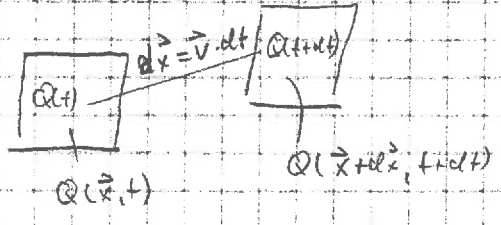 d\vec{x} = \vec{v} \cdot dt
Q(t)
Q(t+dt)
Q(\vec{x}, t)
Q(\vec{x}+d\vec{x}, t+dt)